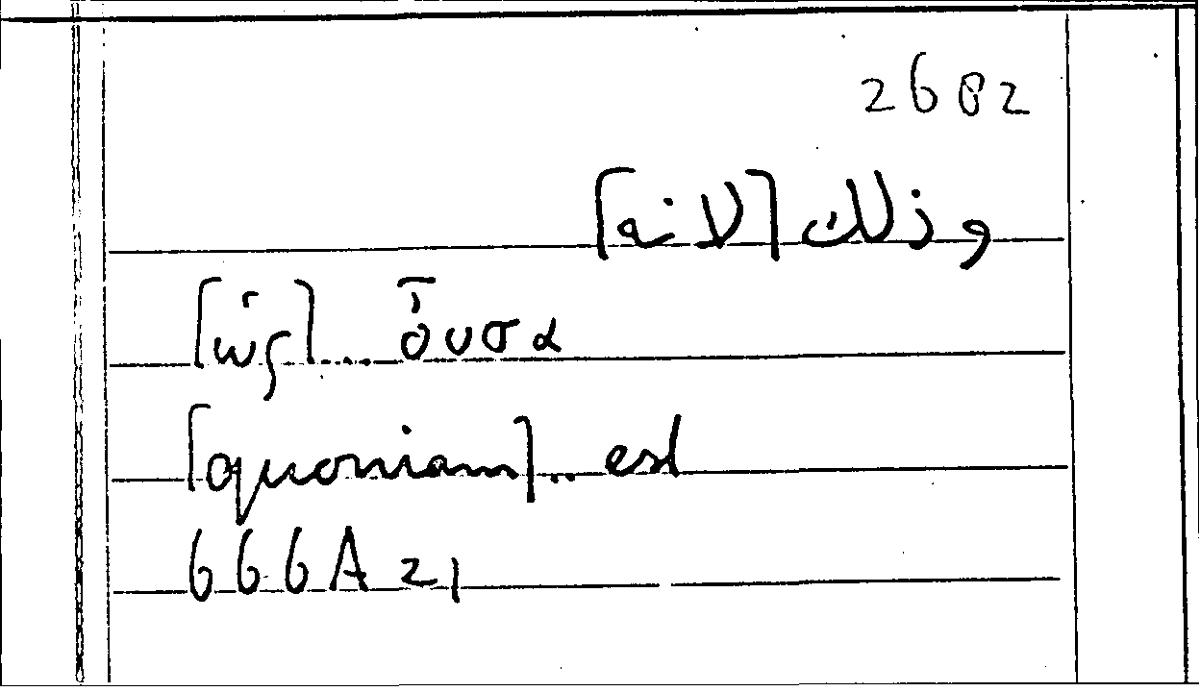 2682
وذلك [لانه]
[ὡς]... οὖσα
[quoniam]... est
666A 21